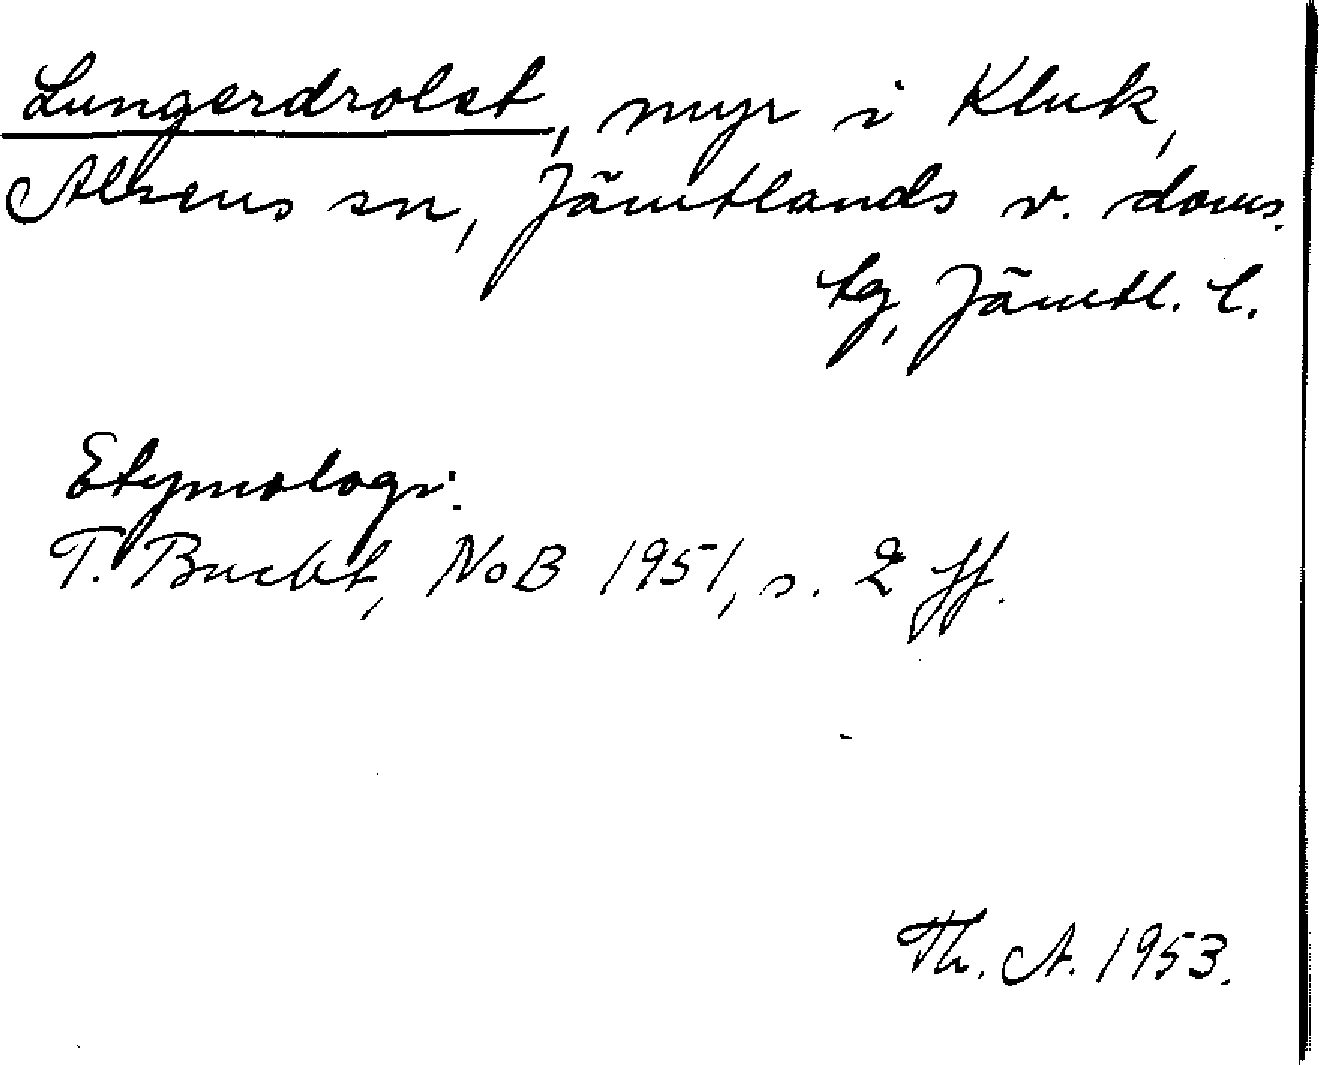 Lungerdrolet, myr i Kluk,
Alsens sn, Jämtlands v. doms.
tg, Jämtl. l.
Etymologi:
T. Bucht, NoB 1951, s. 2 ff.
Th. A. 1953.